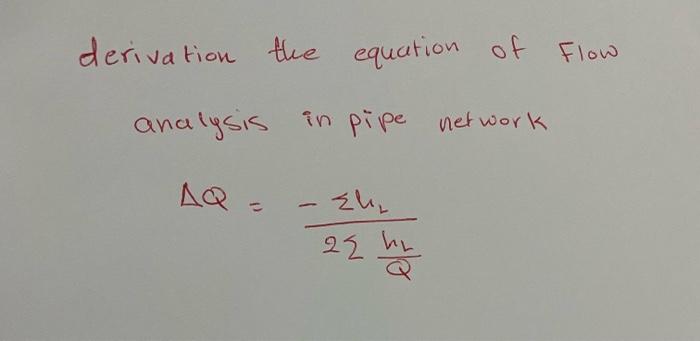 derivation the equation of Flow
analysis in pipe network
ΔQ = - Σh_L / 2Σ h_L/Q